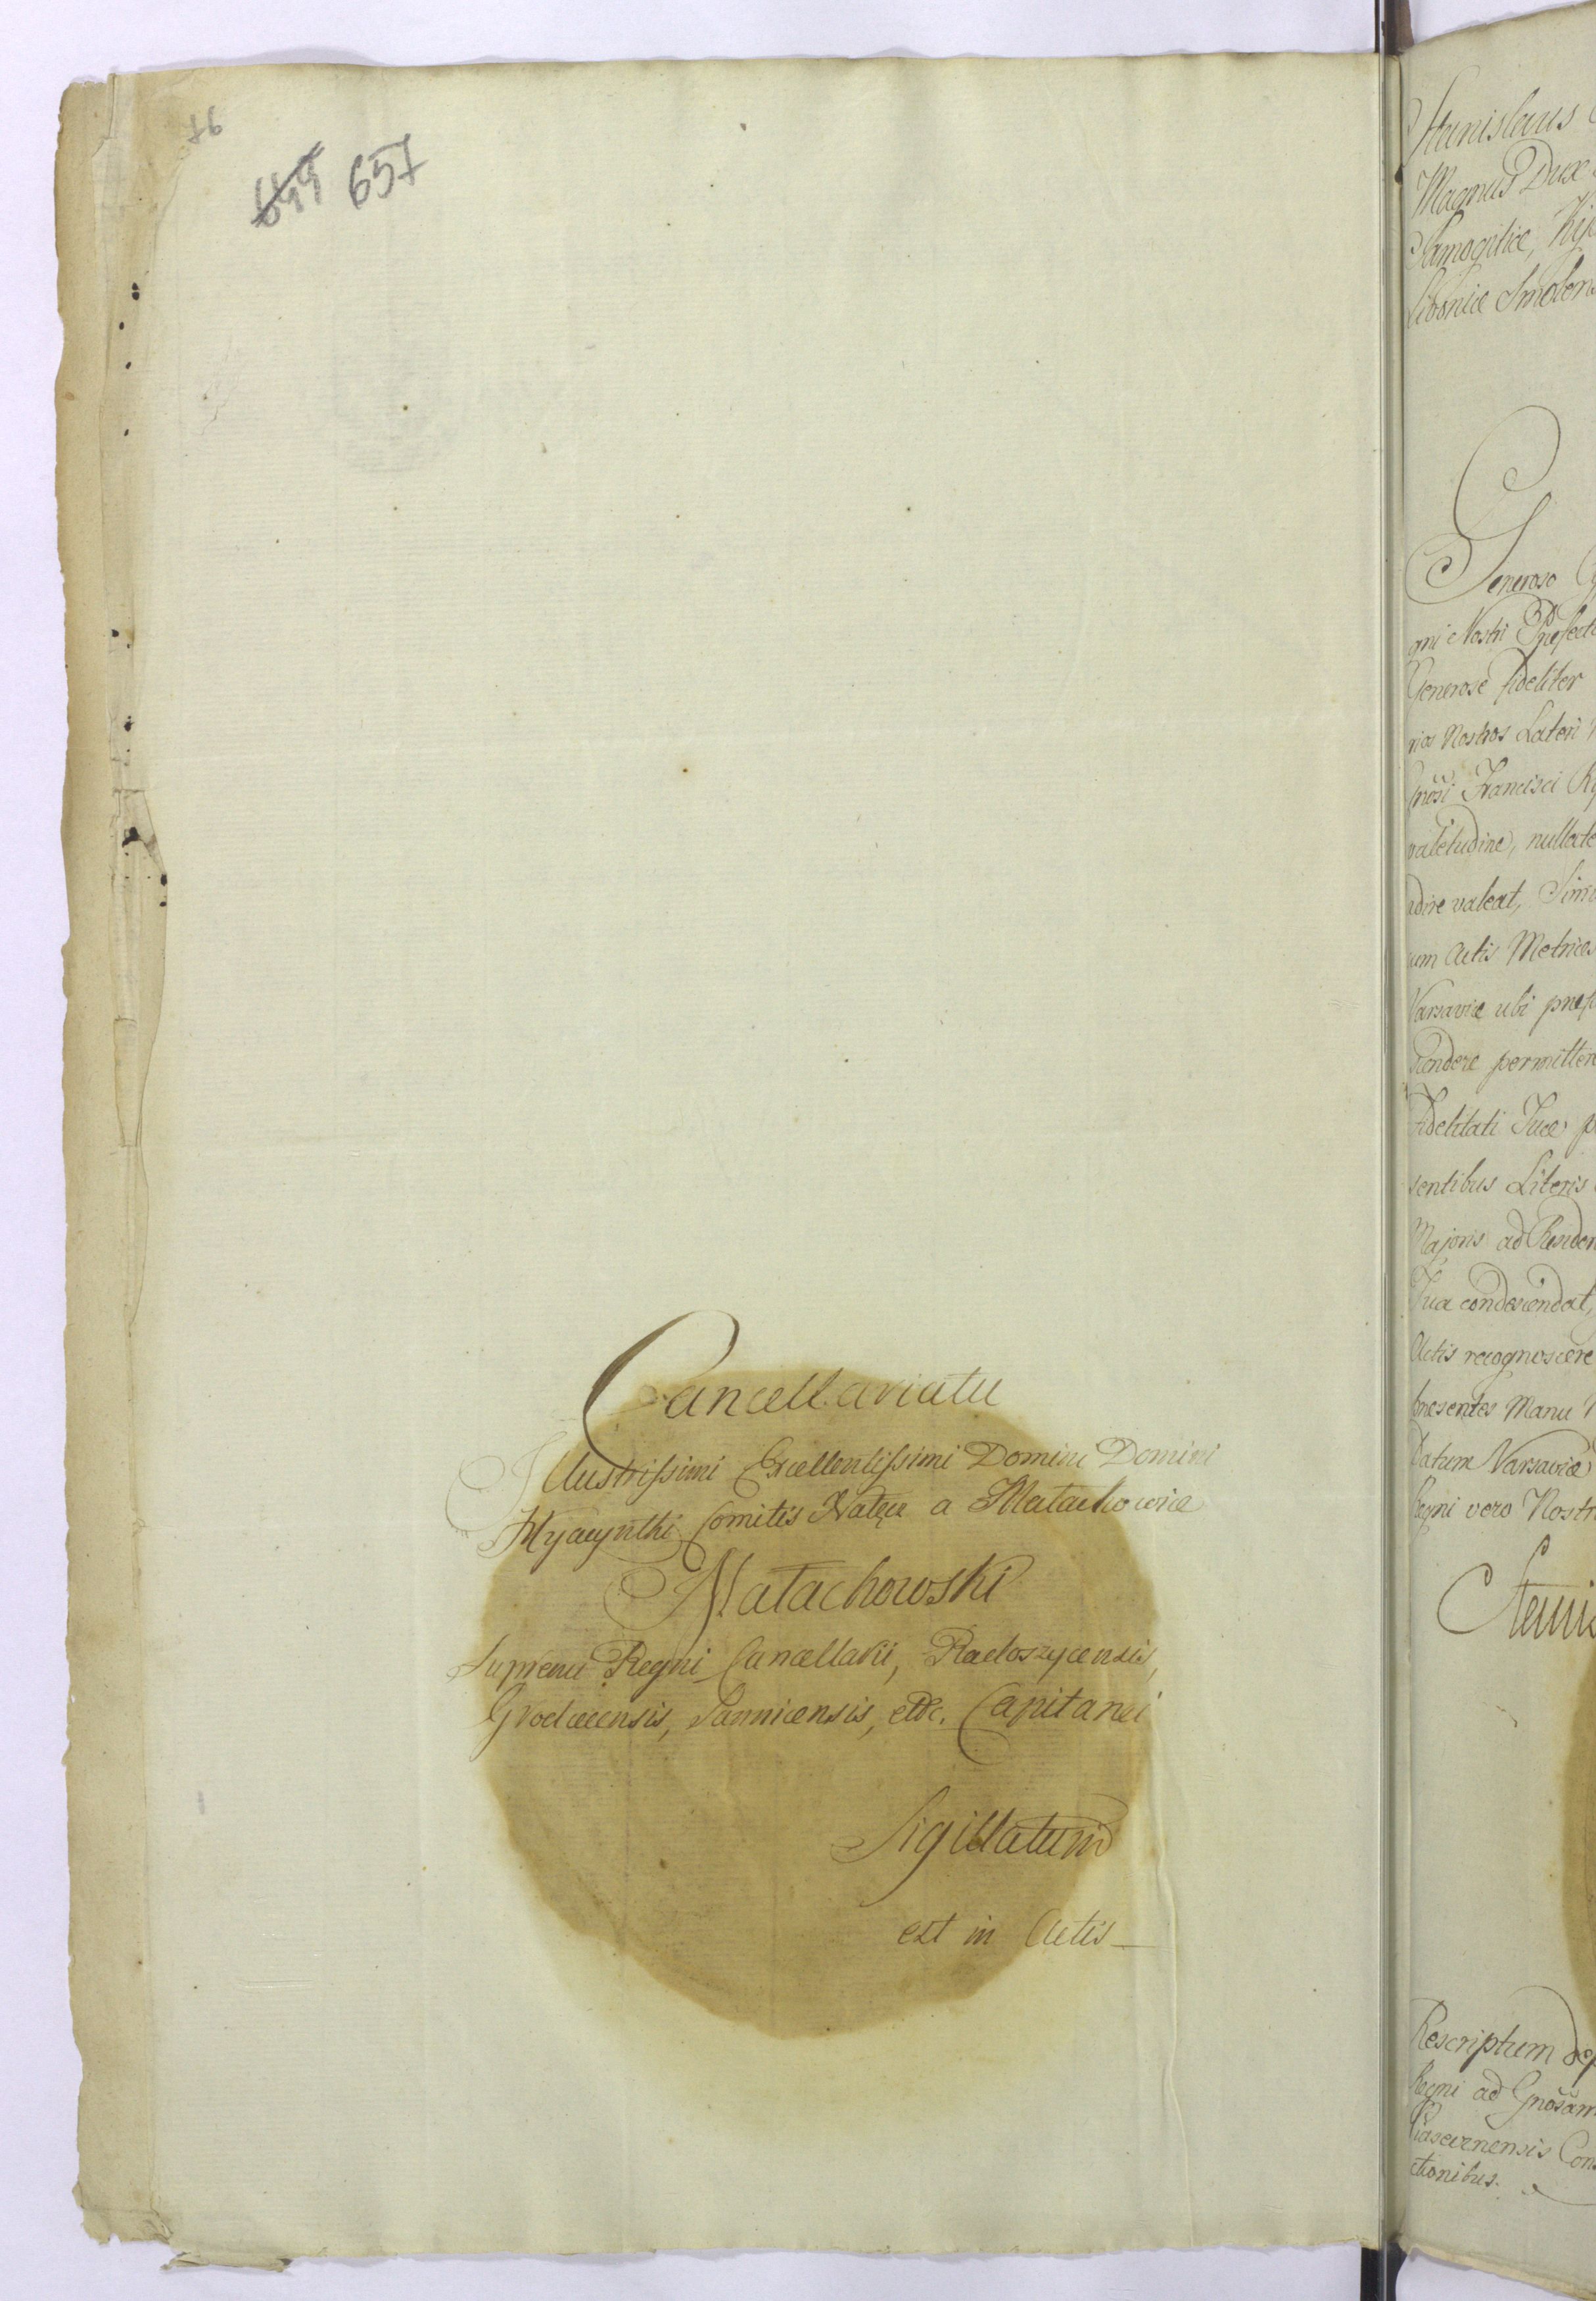 76
649 657
Cancellariatu
Illustrissimi Excellentissimi Domini Domini
Hyacynthi Comitis Nałęcz a Małachowice
Małachowski
Supremi Regni Cancellarii, Radoszycensis,
Grodecensis, Sannicensis, etc. Capitanei
Sigillatum
est in Actis
Stanislaus
Magnus Dux
Samogitiæ, Kijo
Livoniæ Smolens
Generoso
gni Nostri Præfect
Generose fideliter
rios Nostros Lateri
Gnosi Francisci
valetudine, nullate
dire valeat, Sim
um Actis Metrices
Varsaviæ ubi præf
cendere permitter
Fidelitati Tuæ p
sentibus Literis
Majoris ad Residen
Tua condescendat,
Actis recognoscere
Præsentes Manu N
Datum Varsaviæ
Regni vero Nostr
Rescriptum de
Regni ad Gnosam
Conse
ctionibus.